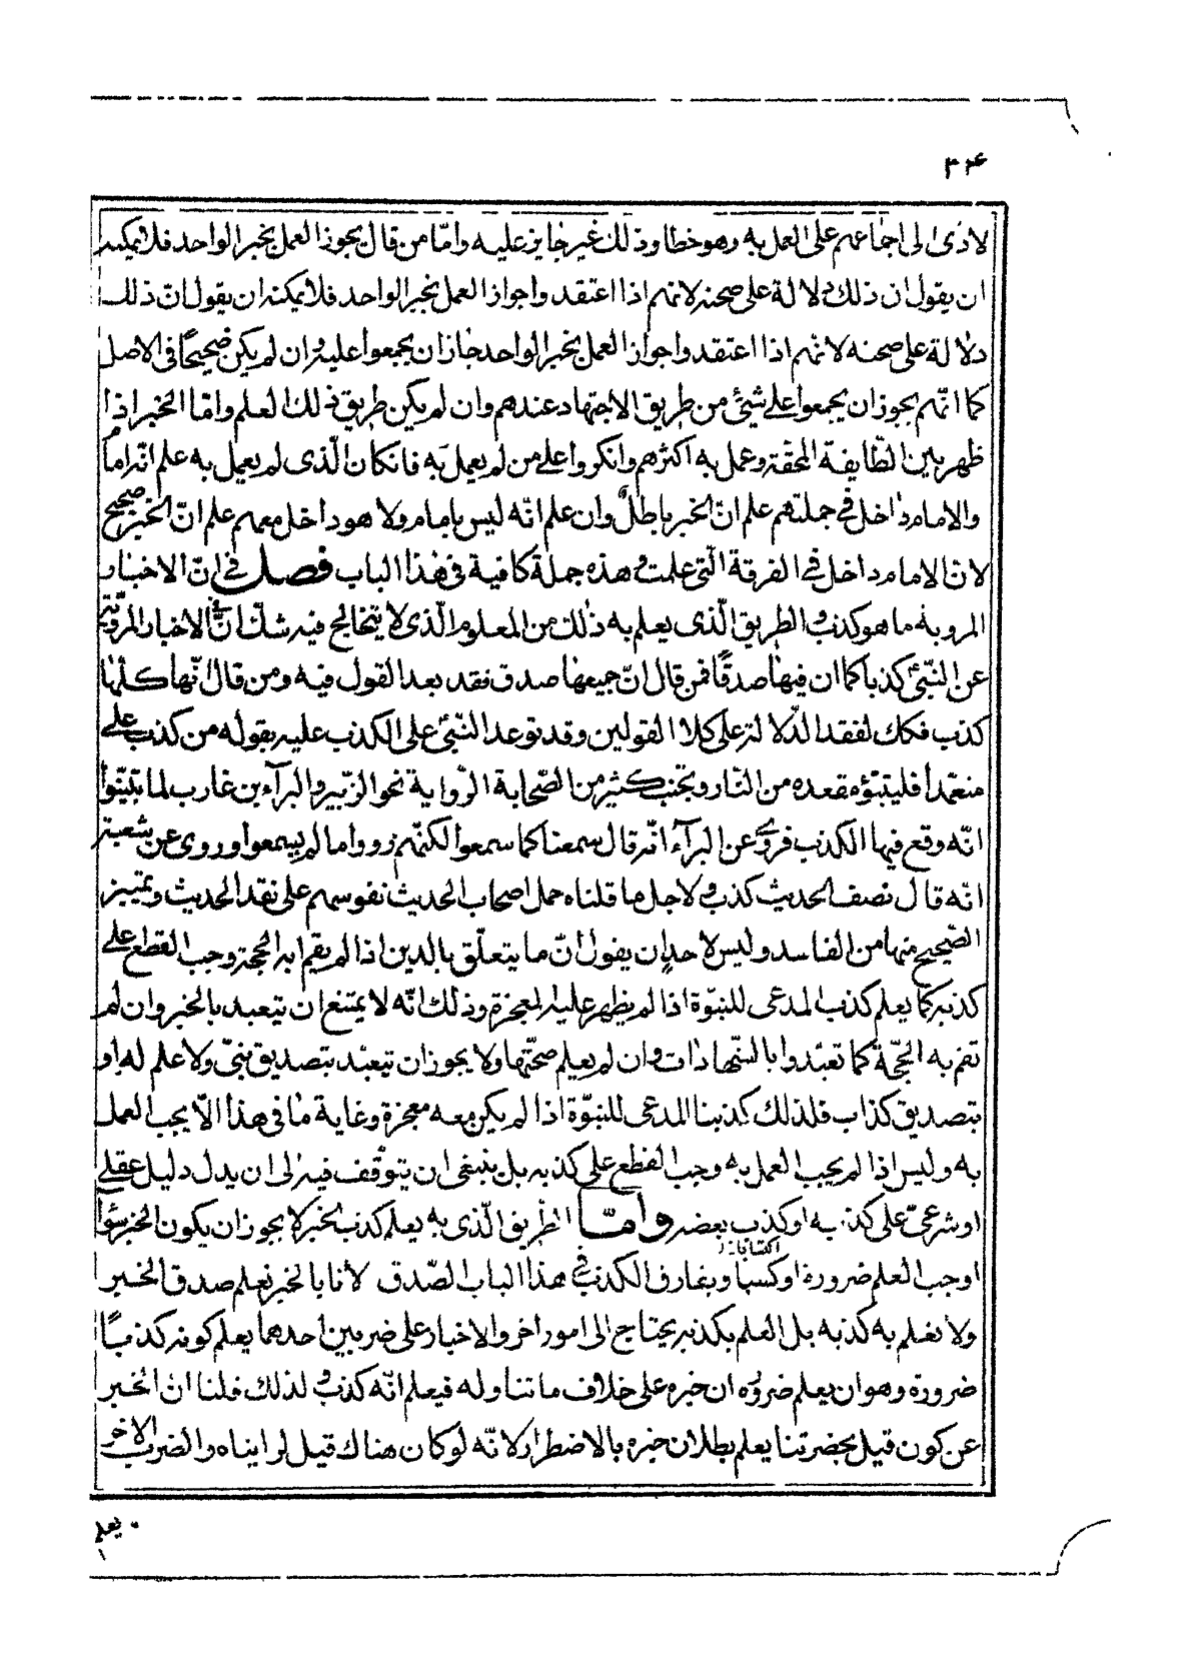 ٣٤
لادى الى اجماعهم على العمل به وهو خطا وذلك غير جايز عليه وامّا من قال بجوز العمل بخبر الواحد فلا يمكنه
ان يقول ان ذلك دلالة على صحته لانهم اذا اعتقدوا جواز العمل بخبر الواحد فلا يمكنه ان يقول انّ ذلك
دلالة على صحته لانهّم اذا اعتقدوا جواز العمل بخبر الواحد جاز ان يجمعوا عليه وان لم يكن صحيحًا فى الاصل
كما انّهم بجوز ان يجمعوا على شيئ من طريق الاجتهاد عندهم وان لم يكن طريق ذلك العلم وامّا الخبر اذا
ظهر بين الطّايفة المحقة وعمل به اكثرهم وانكروا على من لم يعمل به فانكان الّذى لم يعمل به علم انّه امام
والامام داخل فى جملتهم علم انّ الخبر باطل وان علم انّه ليس بامام ولا هو داخل معهم علم انّ الخبر صحيح
لانّ الامام داخل فى الفرقة الّتى علمت و هذه جملة كافية فى هذا الباب فصل فى انّ الاخبار
المروية ما هو كذب و الطريق الّذى يعلم به ذلك من المعلوم الّذى لا يتخالج فيه شكّ انّ فى الاخبار المرويّة
عن النّبىّ كذبا كما ان فيها صدقًا فمن قال انّ جميعها صدق فقد بعد القول فيه ومن قال انّها كلّها
كذب فكك لفقد الدّلالة على كلا القولين وقد توعد النّبىّ على الكذب عليه بقوله من كذب علىّ
متعمّدا فليتبوّء مقعده من النّار وتجنب كثير من الصّحابة الرّواية نحو الزّبير والبرآء بن غارب لما تبيّنوا
انّه وقع فيها الكذب فروى عن البرآء انّه قال سمعنا كما سمعوا لكنّهم رووا ما لم يسمعوا وروى عن شعبة
انه قال نصف الحديث كذب و لاجل ما قلناه حمل اصحاب الحديث نفوسهم على نقد الحديث وتمييز
الصّحيح منها من الفاسد وليس لاحد ان يقول انّ ما يتعلّق بالدين اذا لم يقم به الحجة وجب القطع على
كذبه كما يعلم كذب المدعى للنبوّة اذا لم يظهر عليه المعجزة وذلك انّه لا يمتنع ان يتعبد بالخبر وان لم
تقم به الحجّة كما تعبّدوا بالشّهادات وان لم يعلم صحّتها ولا يجوز ان يتعبّد بتصديق نبىّ ولا علم له او
بتصديق كذاب فلذلك كذبنا المدعى للنبوّة اذا لم يكن معه معجزة وغاية ما فى هذا الّا يجب العمل
به وليس اذا لم يجب العمل به وجب القطع على كذبه بل ينبغى ان يتوقّف فيه الى ان يدل دليل عقلى
او شرعىّ على كذبه او كذب بعضه وامّا الطريق الّذى به يعلم كذب الخبر لا يجوز ان يكون الخبر سوا
اكتسابا
اوجب العلم ضرورة او كسبا وبفارق الكذب فى هذا الباب الصّدق لانا بالخبر نعلم صدق الخبر
ولا نعلم به كذبه بل العلم بكذبه يحتاج الى امور اخر والاخبار على ضربين احدهما يعلم كونه كذبًا
ضرورة وهو ان يعلم ضرورة ان خبره على خلاف ما تناوله فيعلم انّه كذب و لذلك قلنا ان الخبر
عن كون فيل بحضرتنا يعلم بطلان خبره بالاضطرار لانّه لو كان هناك فيل لراينا ه والضرب الاخر
يعلم
١